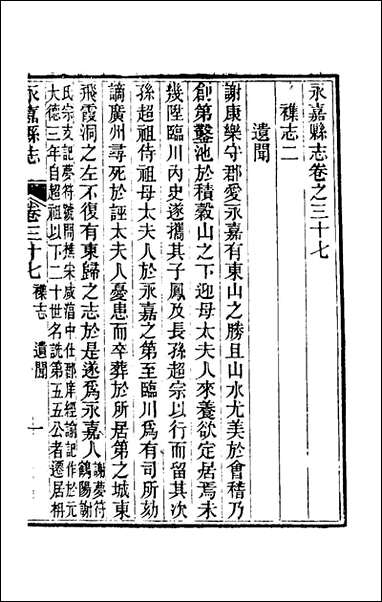 永嘉縣志卷之三十七
襍志二
遺聞
謝康樂守郡愛永嘉有東山之勝且山水尤美於會稽乃
創第鑿池於積穀山之下迎母太夫人來養欲定居焉未
幾陞臨川內史遂攜其子鳳及長孫超宗以行而留其次
孫超祖侍祖母太夫人於永嘉之第至臨川爲有司所劾
謫廣州尋死於誣太夫人憂患而卒葬於所居第之城東
飛霞洞之左不復有東歸之志於是遂爲永嘉人謝夢符鶴陽謝
氏宗支記夢符號開樵宋咸淳中仕郡庠經諭記作於元
大德三年自超祖以下二十世名詵第五五公者遷居枬
永嘉縣志 卷三十七 襍志 遺聞 一